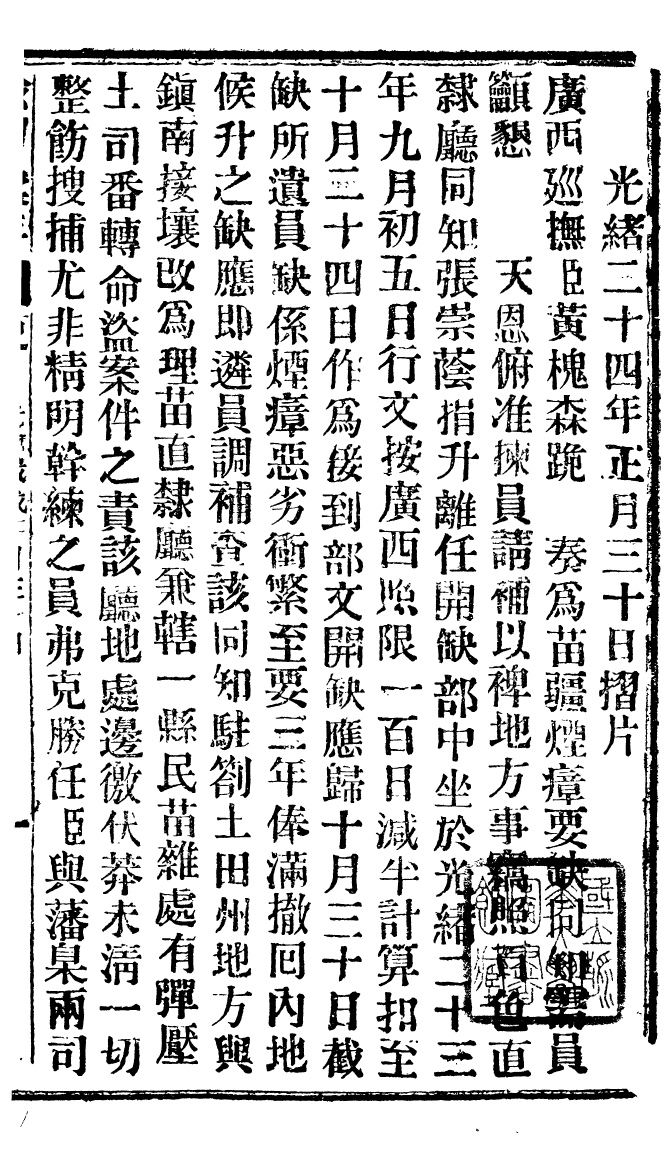 光緒二十四年正月三十日摺片
廣西巡撫臣黃槐森跪　奏爲苗疆煙瘴要缺同知需員
籲懇　天恩俯准揀員請補以裨地方事竊照百色直
隸廳同知張崇蔭捐升離任開缺部中坐於光緒二十三
年九月初五日行文按廣西照限一百日減半計算扣至
十月二十四日作爲接到部文開缺應歸十月三十日截
缺所遺員缺係煙瘴惡劣衝繁至要三年俸滿撤回內地
候升之缺應即遴員調補查該同知駐劄土田州地方與
鎮南接壤改爲理苗直隸廳兼轄一縣民苗雜處有彈壓
土司番轉命盜案件之責該廳地處邊徼伏莽未淸一切
整飭搜捕尤非精明幹練之員弗克勝任臣與藩臬兩司